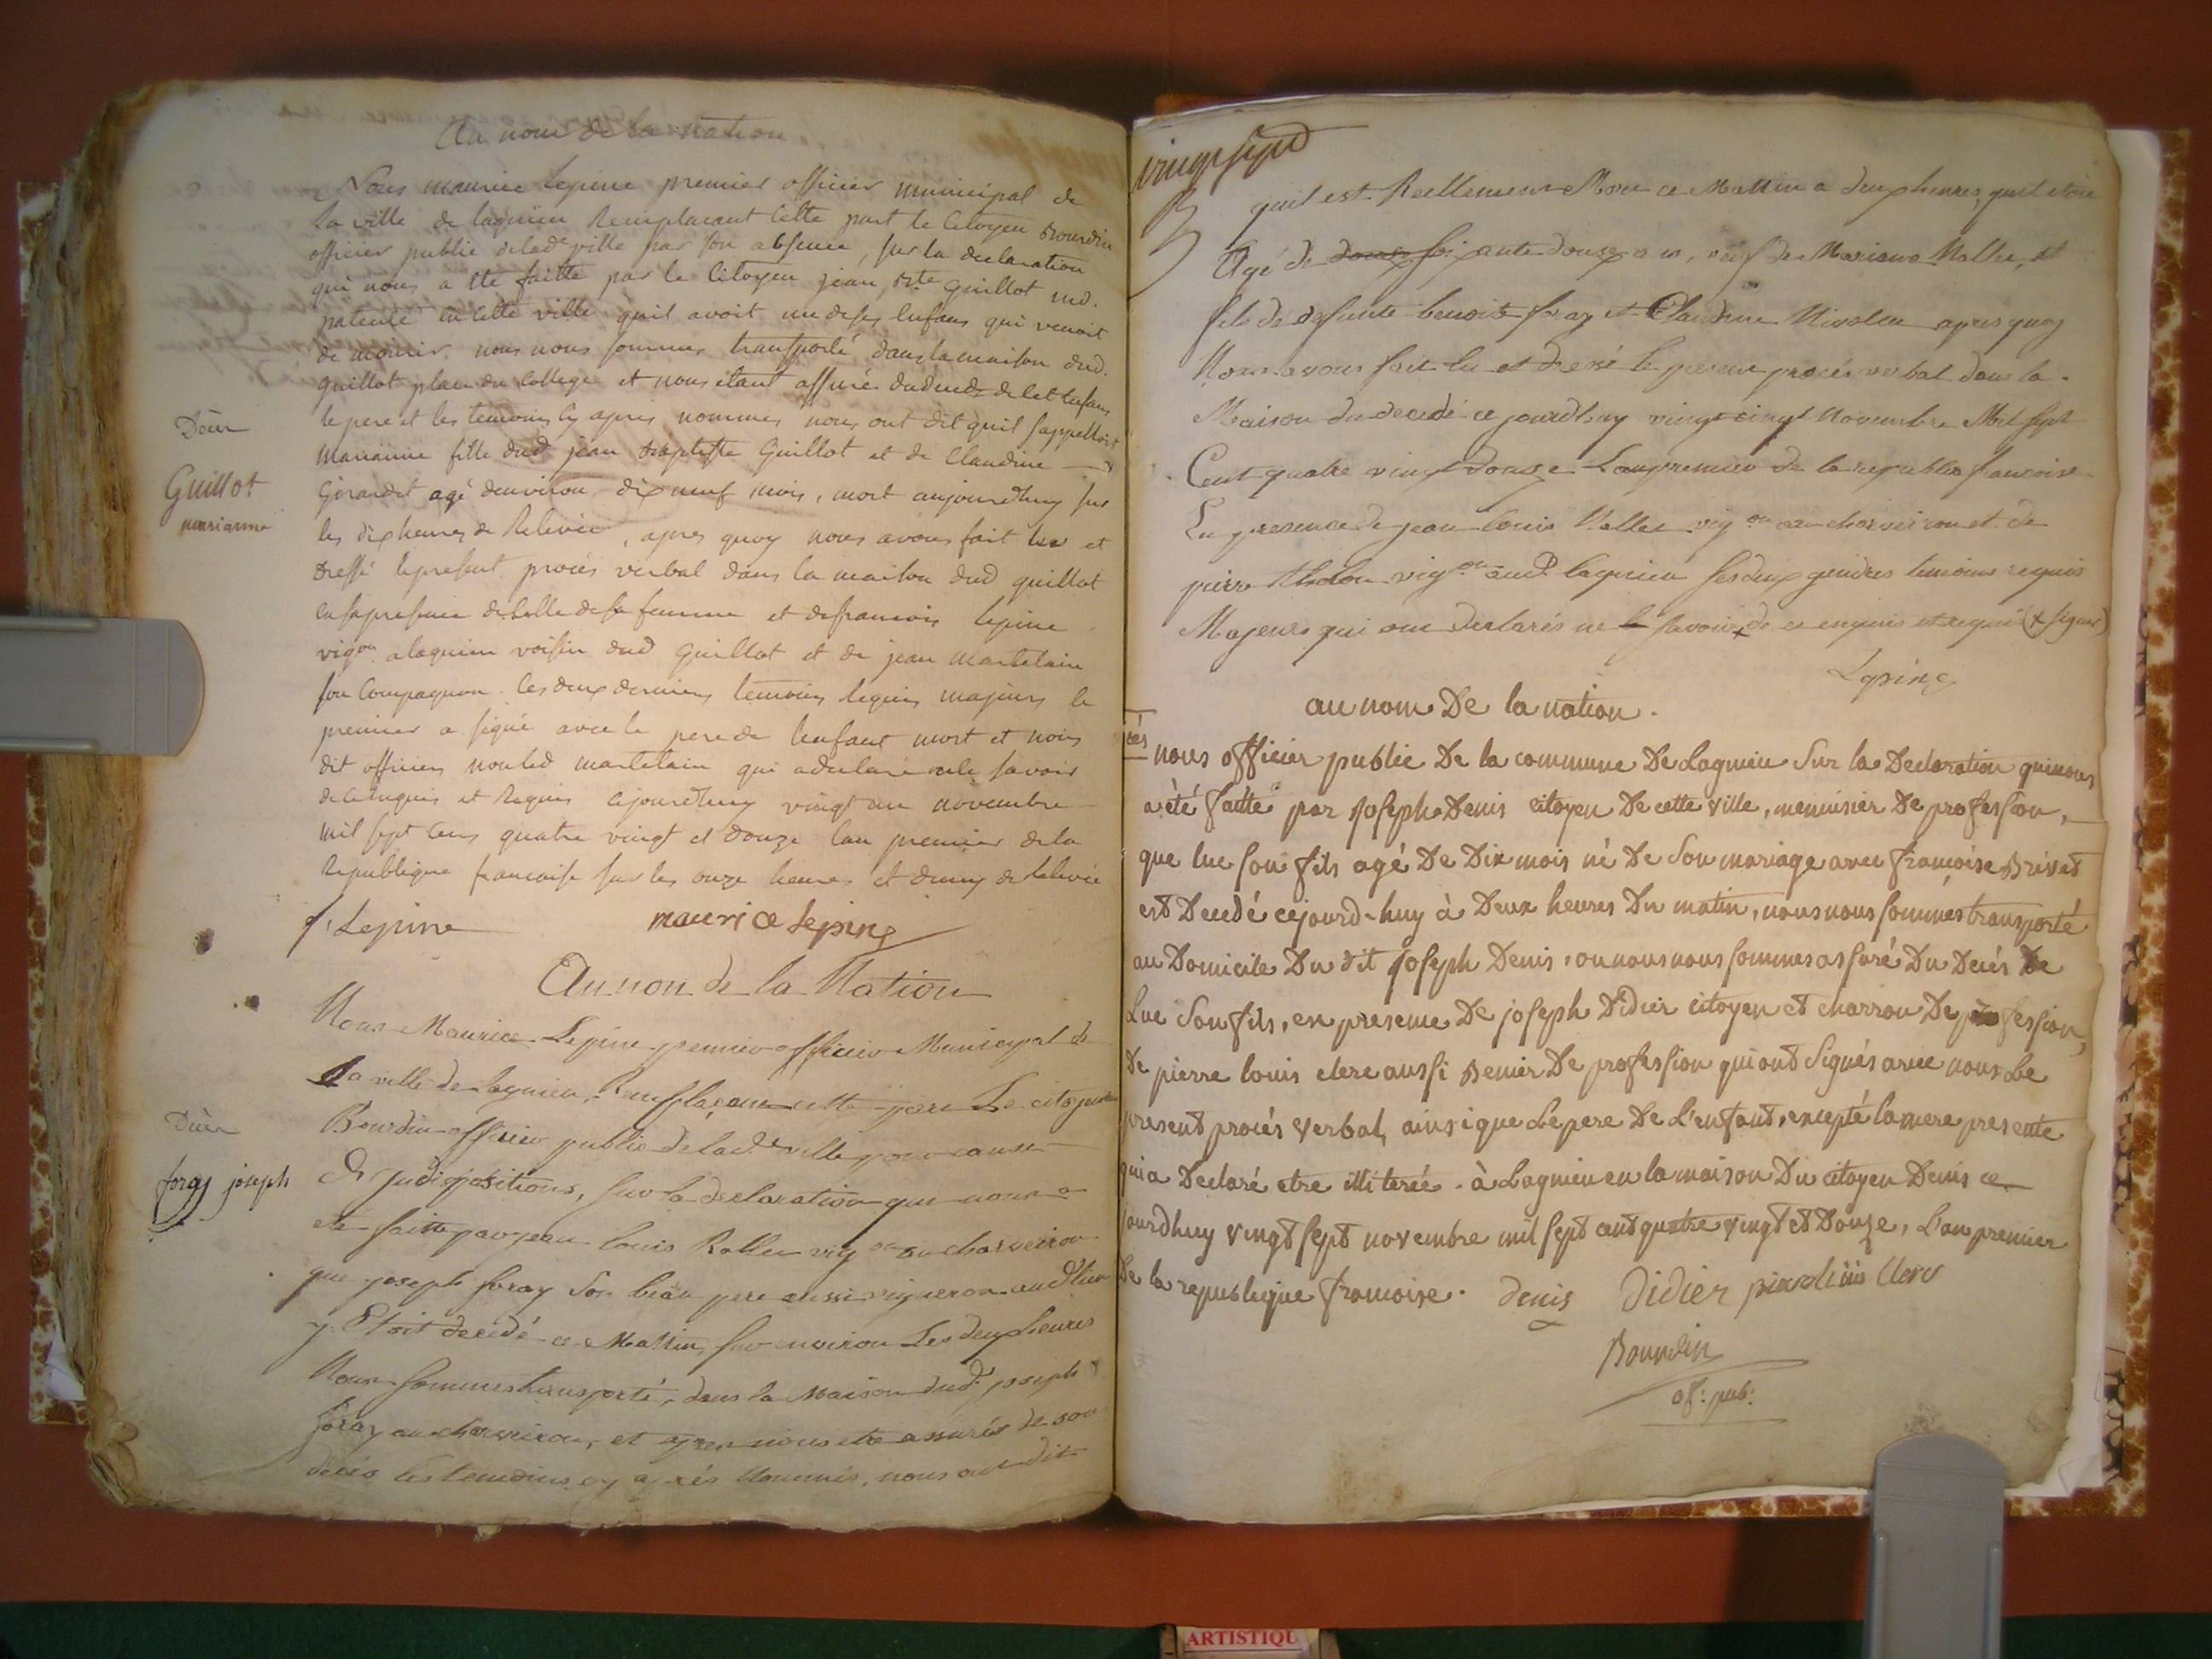 Au nom de la nation
Nous maurice lepine premier officier municipal de
la ville de lagnieu Remplacant Cette part le Citoyen Bourdin
officier public de lade ville par son absence, sur la declaration
qui nous a ete faitte par le Citoyen jean Bte guillot md.
patenté en cette ville quil avoit un de ses enfans qui venoit
de mourir. nous nous sommes transporté dans la maison dud.
guillot place du College et nous etant assuré du deced de cet enfans
le pere et les temoins cy apres nommes nous ont dit quil sappelloit
Marianne fille dud jean Baptiste Guillot et de Claudine
Girardet agé denviron dix neuf mois, mort aujourdhuy sur
les dix heures de Relevée, apres quoy nous avons fait lu et
dressé le present procés verbal dans la maison dud guillot
en sa presence de celle de sa femme et de francois lepine
vigon a lagnieu voisin dud Guillot et de jean martelain
son Compagnon. Ces deux derniers temoins requis majeurs le
premier a signé avec le pere de lenfant mort et nous
dit officier non led martelain qui a declaré ne le savoir
de ce enquis et Requis cejourdhuy vingt un novembre
mil sept cens quatre vingt et douze lan premier de la
Republique francoise sur les onze heures et demy de Relevée
f. Lepine maurice lepine
Décès
Guillot
marianne
Au non de la Nation
Nous Maurice Lepine premier officier Municipal de
La ville de Lagnieu, Remplaçant cette part Le citoyen
Bourdin officier public de lade ville pour cause
D judispositions, sur la declaration que nous a
ete faitte par jean louis Rallet vigon au charveiron
que joseph foray son beau pere aussi vigneron aud lieu
y Etoit decedé ce Mattin sur environ Les deux heures
Nous sommes transporté, dans la Maison dud. joseph
foray au charveiron, et apres nous etre assurés de son
decés les temoins cy aprés Nommés, nous ont dit
Décès
foray joseph
vingt sept
quil est Reellement Mort ce Mattin a deux heures, quil etoit
Agé de douze soixante douze ans, veuf de Mariane Mallet, et
fils de defunte benoit foray et Claudine Nivolet apres quoy
Nous avons fait lu et dressé le present procés verbal dans la
Maison du decedé ce jourdhuy vingt cinq Novembre Mil sept
Cent quatre vingt douze Lan premier de la republic francoise
En presence de jean louis Rallet vigon au charveiron et de
pierre tholon vigon aud. lagnieu ses deux gendres temoins requis
Majeurs qui ont declarés ne le savoir + de ce enquis et requis (+ signer)
Lepine
au nom De la nation.
nous officier public De la commune De Lagnieu Sur la Declaration qui nous
a été faitte par joseph Denis citoyen De cette ville, menuisier De profession,
que luc son fils agé De Dix mois né De Son mariage avec françoise Brivet
est Decedé cejourd-huy à Deux heures Du matin, nous nous sommes transporté
au Domicile Du dit joseph Denis, ou nous nous sommes assuré Du Decés De
Luc Son fils, en presence De joseph Didier citoyen et charron De profession,
De pierre louis clerc aussi Denier De profession qui ont Signés avec nous Le
present procés verbal, ainsi que Le pere De L'enfant, excepté la mere presente
qui a Declaré etre illiterée. à Lagnieu en la maison Du citoyen Denis ce
jourdhuy vingt sept novembre mil sept cent quatre vingt et Douze, L'an premier
De la republique françoise. denis Didier pierre louis Clerc
Bourdin
of: pub:
ARTISTIQU